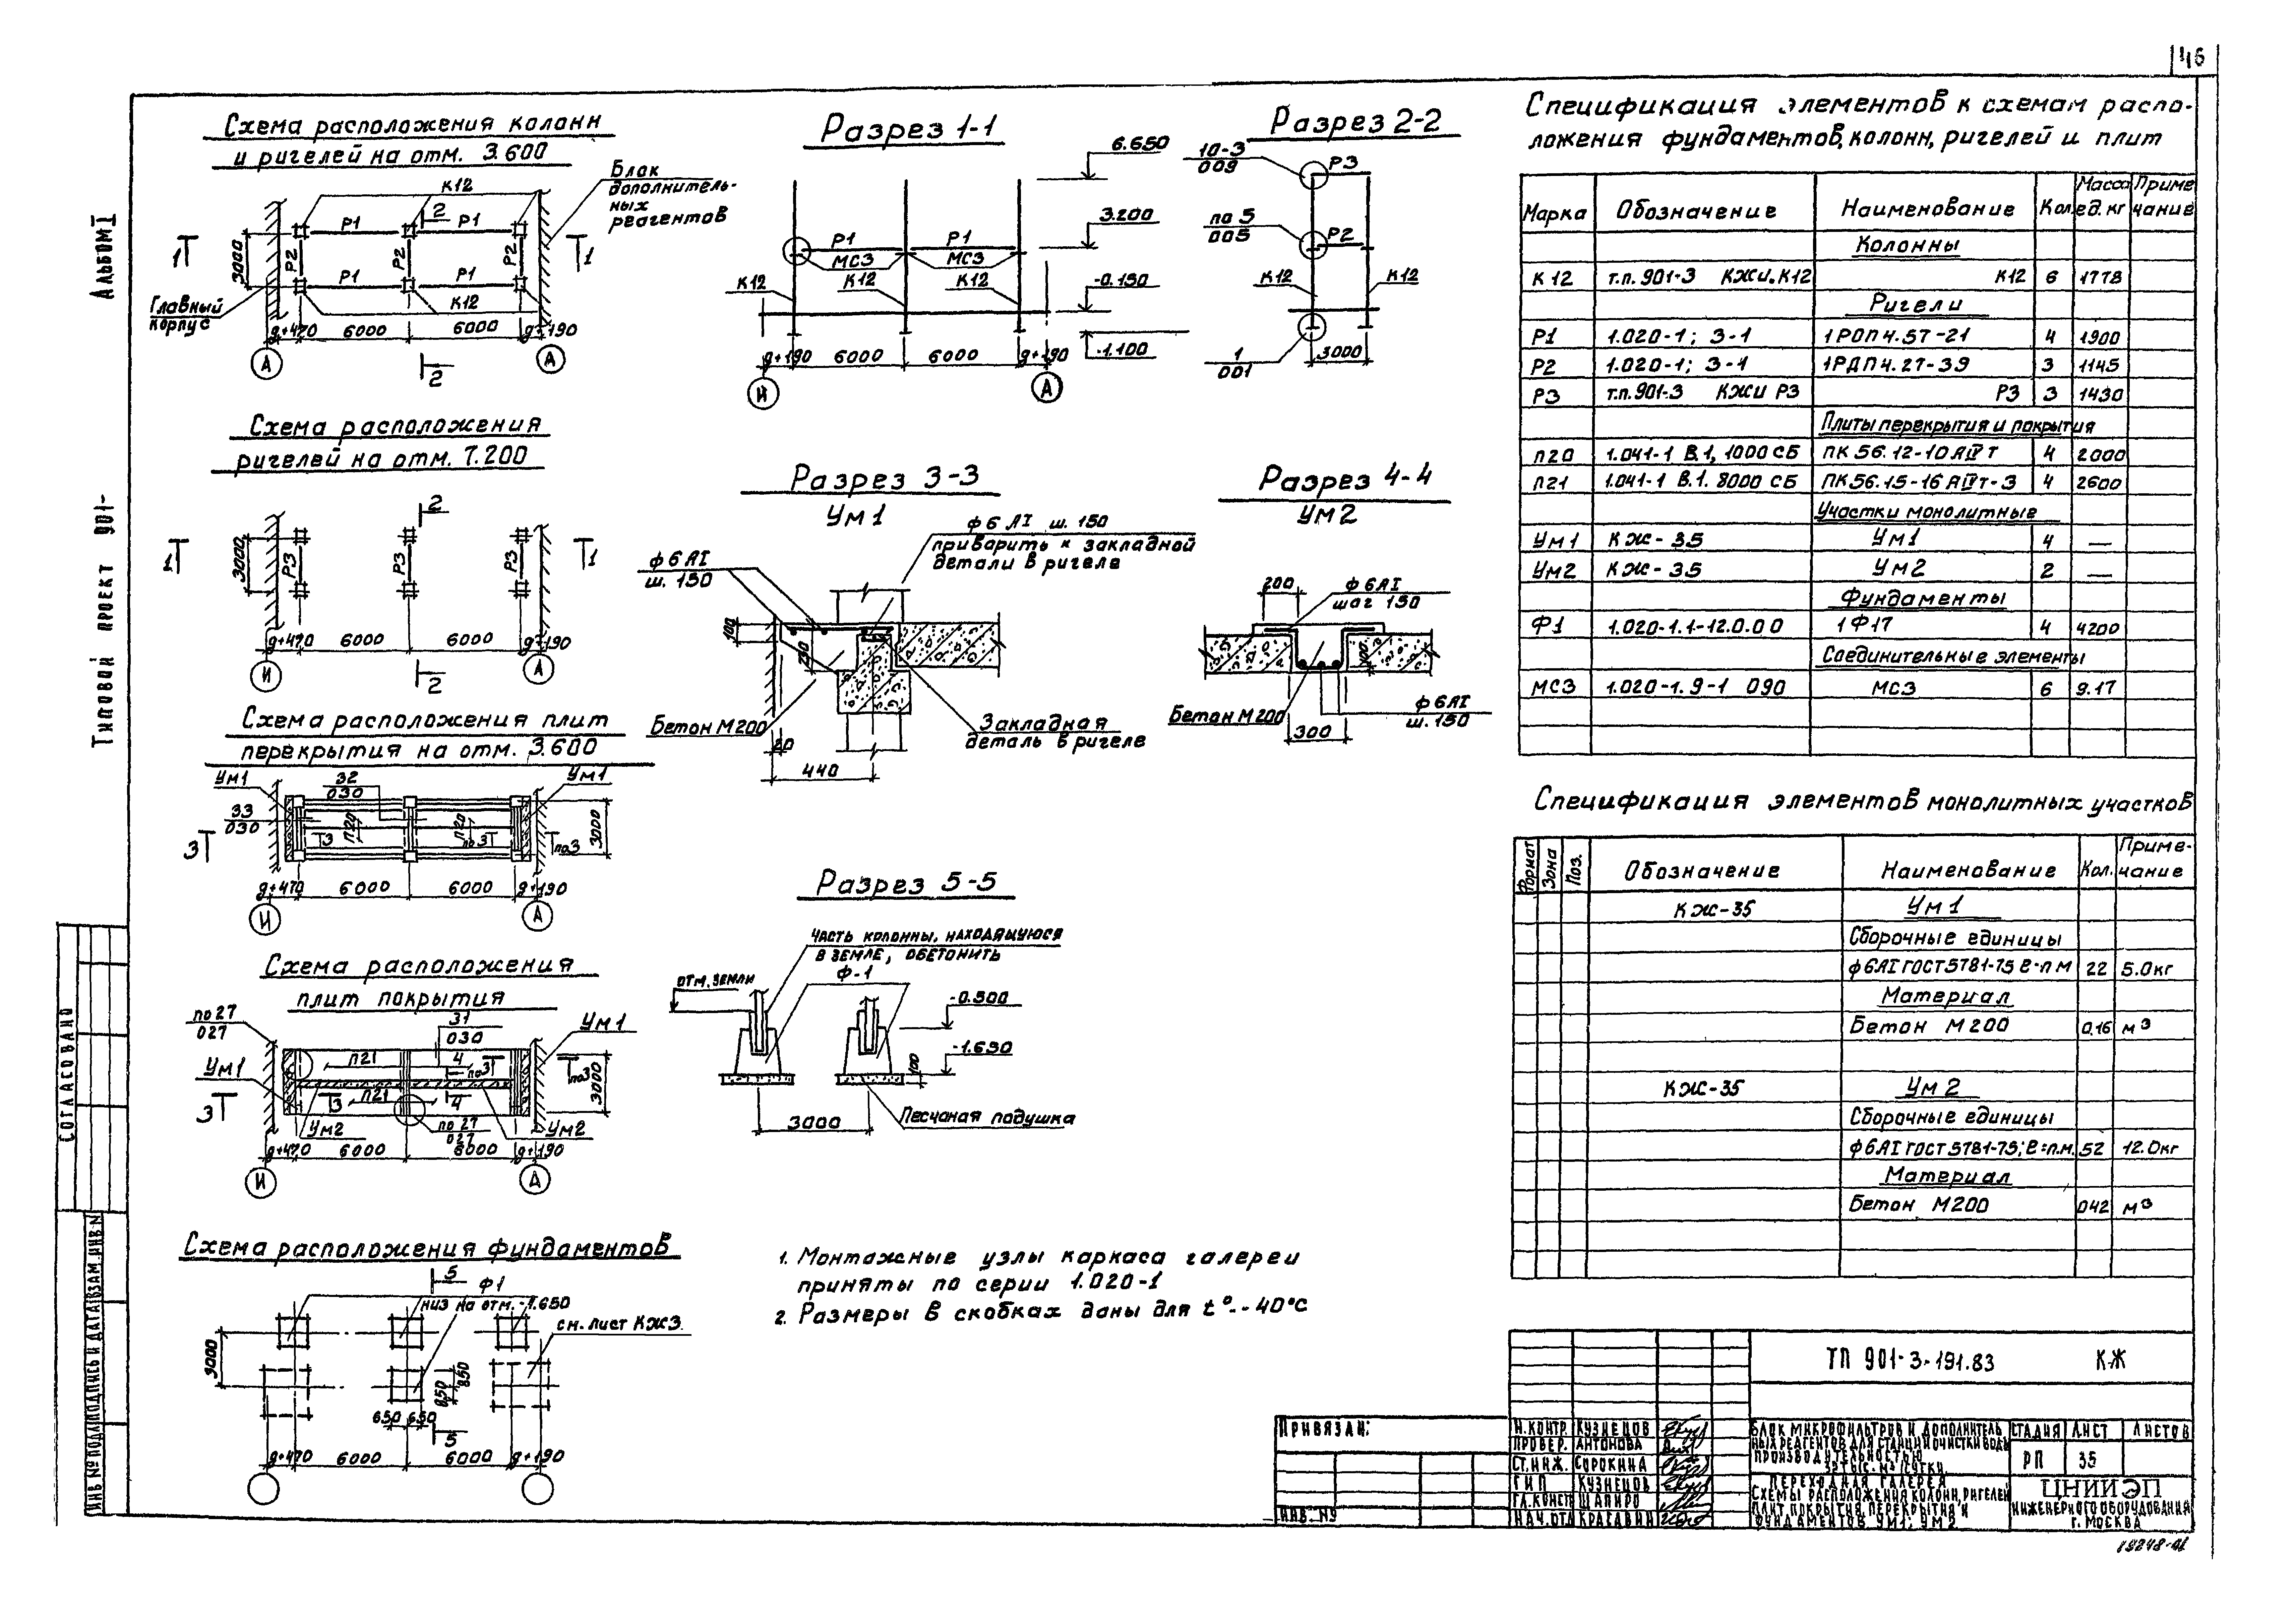 46
Альбом I
Типовой проект 901-
Согласовано
Инв № подл
Подпись и дата
Взам. инв №
Схема расположения колонн
и ригелей на отм. 3.600
Блок
дополнитель-
ных
реагентов
К12
2
Р1 Р1
1 1
3000 Р2 Р2 Р2
Р1 Р1
К12
Главный
корпус
g+470 6000 6000 g+190
А А
2
Схема расположения
ригелей на отм. 7.200
2
1 1
3000 Р3 Р3 Р3
g+470 6000 6000 g+190
И А
2
Схема расположения плит
перекрытия на отм. 3.600
Ум1 32 Ум1
030
33
030
П20 П20
3 3 по 3 по3
3000
g+470 6000 6000 g+190
И А
Схема расположения
плит покрытия
по 27
027
31
030
Ум1
П21 4 по3 по3
Ум1
3 3 П21 4
3000
Ум2 по 27 Ум2
027
g+470 6000 6000 g+190
И А
Схема расположения фундаментов
5 Ф1
низ на отм. -1.650
см. лист КЖ3.
3000
650 650
650 650
5
g+470 6000 6000 g+190
Разрез 1-1
6.650
3.200
Р1 Р1
МС3 МС3
К12 К12 К12
-0.150
-1.100
g+190 6000 6000 g+190
И А
Разрез 2-2
10-3
009
Р3
по 5
005
Р2
К12 К12
1
001
3000
Разрез 3-3
Ум1
ф6 АI ш. 150
приварить к закладной
детали в ригеле
ф6АI
ш. 150
100
Бетон М200
Закладная
деталь в ригеле
20
440
Разрез 4-4
Ум2
200 ф6АI
шаг 150
Бетон М200
ф6АI
ш. 150
300
Разрез 5-5
Часть колонны, находящуюся
в земле, обетонить
Отм. земли Ф-1
-0.300
-1.650
100
Песчаная подушка
3000
1. Монтажные узлы каркаса галереи
приняты по серии 1.020-1
2. Размеры в скобках даны для t°--40°С
Спецификация элементов к схемам распо-
ложения фундаментов, колонн, ригелей и плит
Марка Обозначение Наименование Кол. Масса ед. кг Приме чание
Колонны
К12 т.п. 901-3 КЖИ.К12 К12 6 1778
Ригели
Р1 1.020-1; 3-1 1РОП4.57-21 4 1900
Р2 1.020-1; 3-1 1РДП4.27-39 3 1145
Р3 т.п. 901-3 КЖИ Р3 Р3 3 1430
Плиты перекрытия и покрытия
П20 1.041-1 В.1, 1000 СБ ПК 56.12-10 АIVТ 4 2000
П21 1.041-1 В.1. 8000 СБ ПК56.15-16 АIVТ-3 4 2600
Участки монолитные
Ум1 КЖ-35 Ум1 4 —
Ум2 КЖ-35 Ум2 2 —
Фундаменты
Ф1 1.020-1.1-12.0.00 1Ф17 4 4200
Соединительные элементы
МС3 1.020-1.9-1 090 МС3 6 9.17
Спецификация элементов монолитных участков
Формат Зона Поз. Обозначение Наименование Кол. Приме- чание
КЖ-35 Ум1
Сборочные единицы
ф6АI ГОСТ5781-75 ℓ=п м 22 5.0кг
Материал
Бетон М200 0,16 м³
КЖ-35 Ум2
Сборочные единицы
ф6АI ГОСТ5781-75; ℓ=п.м. 52 12.0кг
Материал
Бетон М200 042 м³
Привязан:
Инв. №
ТП 901-3-191.83 КЖ
Н.контр. Кузнецов
Провер. Антонова
Ст.инж. Сорокина
ГИП Кузнецов
Гл.констр Шапиро
Нач.отд Красавин
Блок микрофильтров и дополнитель
ных реагентов для станции очистки воды
производительностью
32 тыс. м³/сутки.
Переходная галерея
Схемы расположения колонн, ригелей
плит покрытия, перекрытия и
фундаментов Ум1; Ум2
Стадия Лист Листов
РП 35
ЦНИИЭП
инженерного оборудования
г. Москва